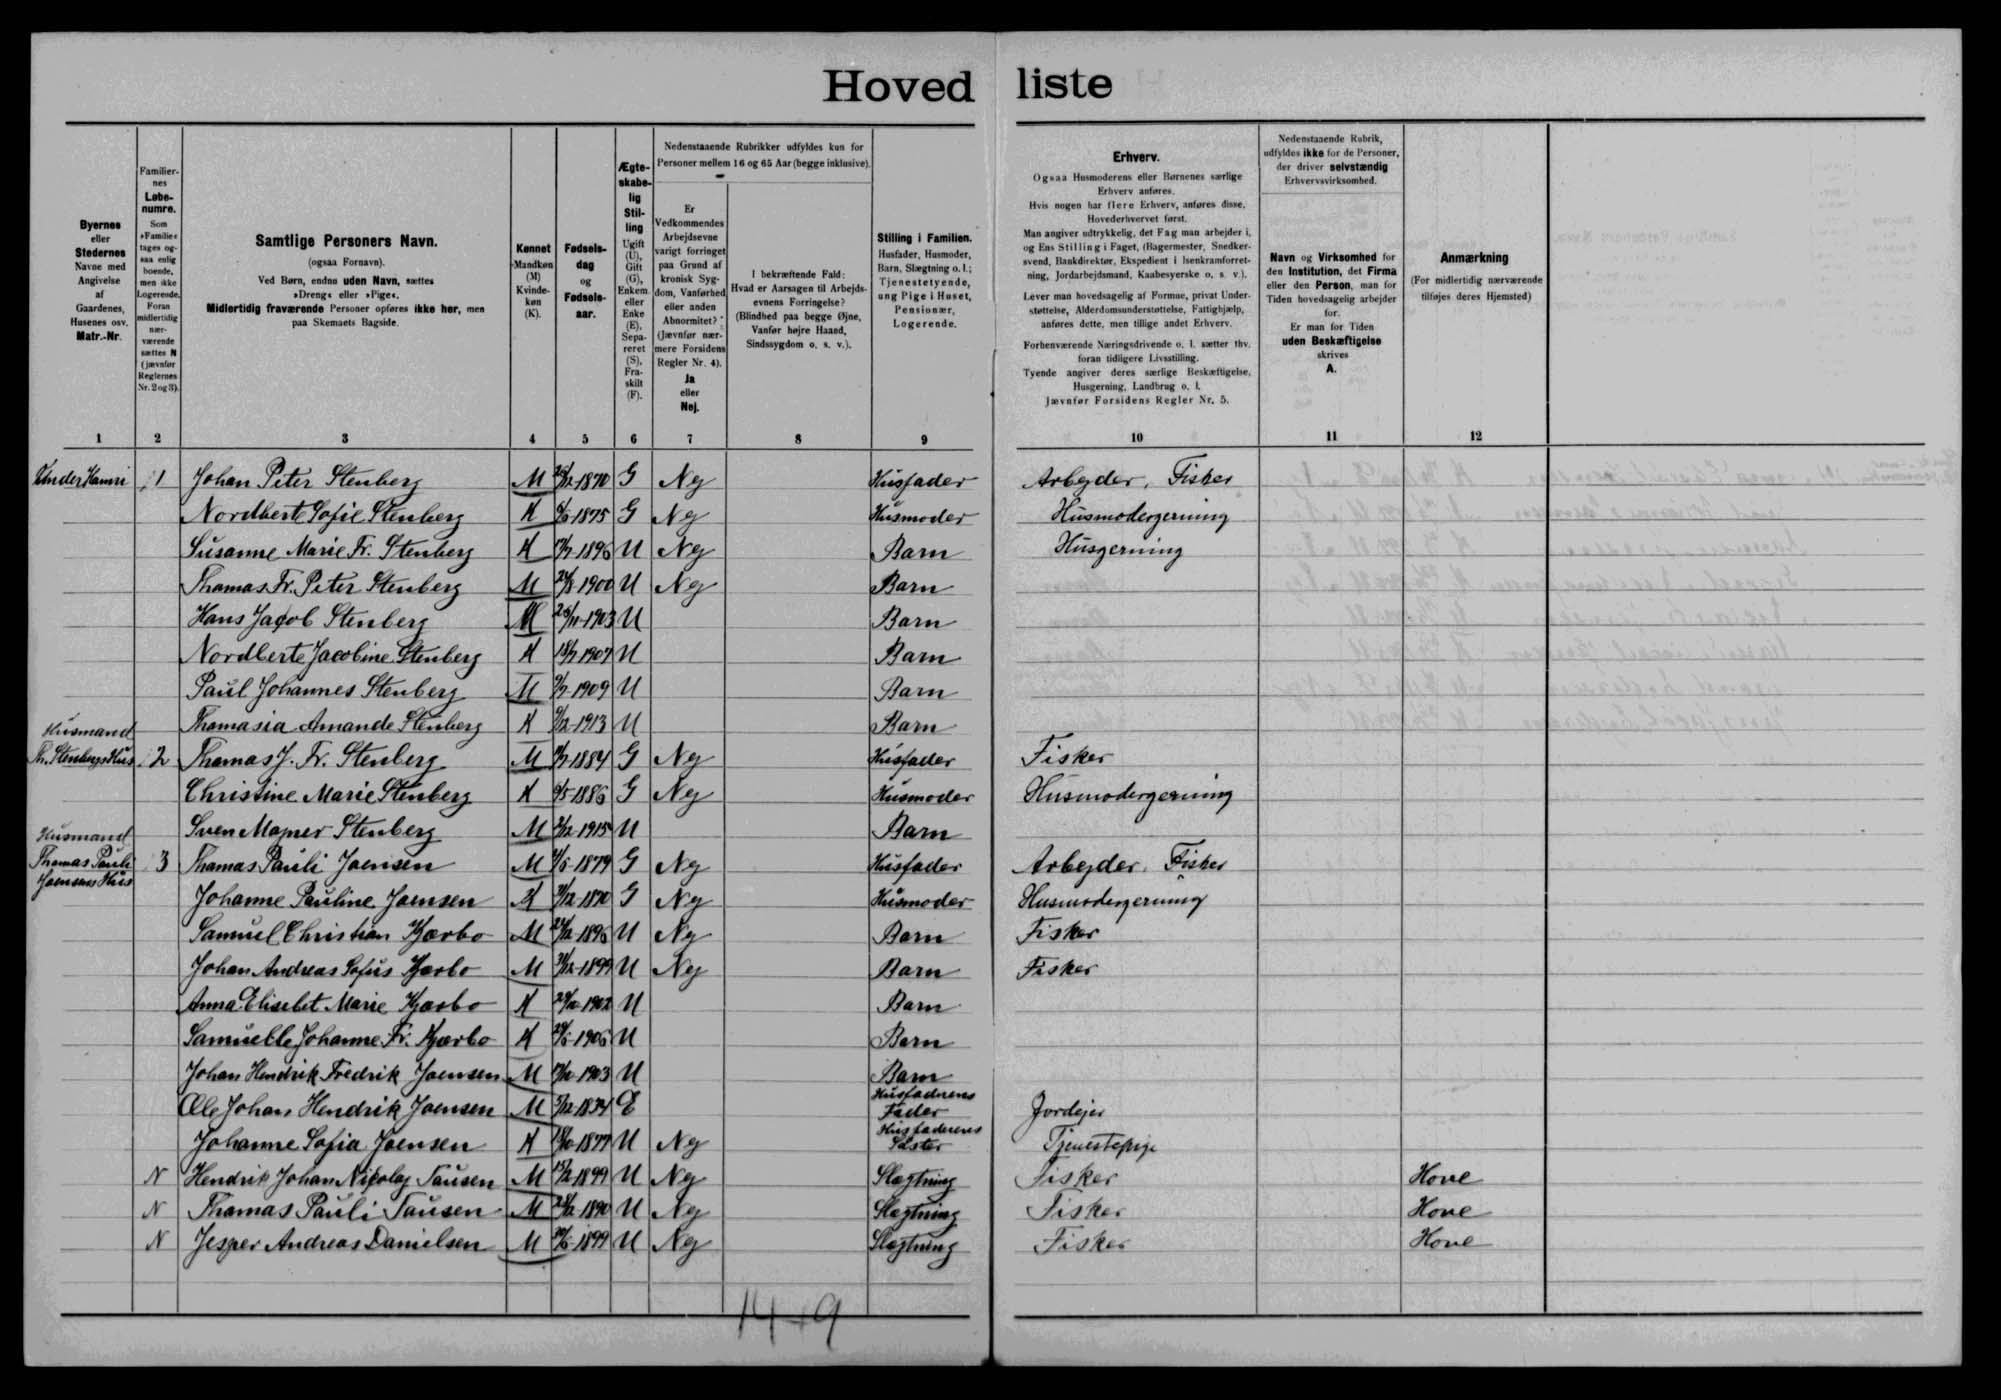 Hoved liste
Byernes
eller
Stedernes
Navne med
Angivelse
af
Gaardenes,
Husenes osv.
Matr.-Nr.
1
Familier-
nes
Løbe-
numre.
Som
»Familie«
tages og-
saa enlig
boende,
men ikke
Logerende.
Foran
midlertidig
nær-
værende
sættes N
(jævnfør
Reglernes
Nr. 2 og 3).
2
Samtlige Personers Navn.
(ogsaa Fornavn).
Ved Børn, endnu uden Navn, sættes
»Dreng« eller »Pige«.
Midlertidig fraværende Personer opføres ikke her, men
paa Skemaets Bagside.
3
Kønnet
Mandkøn
(M)
Kvinde-
køn
(K).
4
Fødsels-
dag
og
Fødsels-
aar.
5
Ægte-
skabe-
lig
Stil-
ling
Ugift
(U),
Gift
(G),
Enkem.
eller
Enke
(E),
Sepa-
reret
(S),
Fra-
skilt
(F).
6
Nedenstaaende Rubrikker udfyldes kun for
Personer mellem 16 og 65 Aar (begge inklusive).
Er
Vedkommendes
Arbejdsevne
varigt forringet
paa Grund af
kronisk Syg-
dom, Vanførhed
eller anden
Abnormitet?
(Jævnfør nær-
mere Forsidens
Regler Nr. 4).
Ja
eller
Nej.
7
I bekræftende Fald:
Hvad er Aarsagen til Arbejds-
evnens Forringelse?
(Blindhed paa begge Øjne,
Vanfør højre Haand,
Sindssygdom o. s. v.).
8
Stilling i Familien.
Husfader, Husmoder,
Barn, Slægtning o. l.;
Tjenestetyende,
ung Pige i Huset,
Pensionær,
Logerende.
9
Erhverv.
Ogsaa Husmoderens eller Børnenes særlige
Erhverv anføres.
Hvis nogen har flere Erhverv, anføres disse,
Hovederhvervet først.
Man angiver udtrykkelig, det Fag man arbejder i,
og Ens Stilling i Faget, (Bagermester, Snedker-
svend, Bankdirektør, Ekspedient i Isenkramforret-
ning, Jordarbejdsmand, Kaabesyerske o. s. v.).
Lever man hovedsagelig af Formue, privat Under-
støttelse, Alderdomsunderstøttelse, Fattighjælp,
anføres dette, men tillige andet Erhverv.
Forhenværende Næringsdrivende o. l. sætter thv.
foran tidligere Livsstilling.
Tyende angiver deres særlige Beskæftigelse,
Husgerning, Landbrug o. l.
Jævnfør Forsidens Regler Nr. 5.
10
Nedenstaaende Rubrik,
udfyldes ikke for de Personer,
der driver selvstændig
Erhvervsvirksomhed.
Navn og Virksomhed for
den Institution, det Firma
eller den Person, man for
Tiden hovedsagelig arbejder
for.
Er man for Tiden
uden Beskæftigelse
skrives
A.
11
Anmærkning
(For midlertidig nærværende
tilføjes deres Hjemsted)
12
Under Hamri 1 Johan Peter Stenberg M 1870 G Nej Husfader Arbejder, Fisker
Nordberte Sofie Stenberg K 1875 G Nej Husmoder Husmodergerning
Susanne Marie Fr. Stenberg K 1896 U Nej Barn Husgerning
Thomas Fr. Peter Stenberg M 1900 U Nej Barn
Hans Jacob Stenberg M 1903 U Barn
Nordberte Jacobine Stenberg K 18/7 1907 U Barn
Paul Johannes Stenberg M 9/7 1909 U Barn
Thomasia Amande Stenberg K 9/12 1913 U Barn
Husmand
Th. Stenbergs Hus 2 Thomas J. Fr. Stenberg M 1884 G Nej Husfader Fisker
Christine Marie Stenberg K 1886 G Nej Husmoder Husmodergerning
Sven Magner Stenberg M 1915 U Barn
Husmand
Thomas Pauli
Joensens Hus 3 Thomas Pauli Joensen M 1879 G Nej Husfader Arbejder, Fisker
Johanne Pauline Joensen K 1870 G Nej Husmoder Husmodergerning
Samuel Christian Kjærbo M 1896 U Nej Barn Fisker
Johan Andreas Sofus Kjærbo M 1899 U Nej Barn Fisker
Anna Elisebet Marie Kjærbo K 1902 U Barn
Samuelle Johanne Fr. Kjærbo K 1906 U Barn
Johan Hendrik Fredrik Joensen M 1903 U Barn
Ole Johan Hendrik Joensen M 1834 E Husfaderens Fader Jordejer
Johanne Sofia Joensen K 1877 U Nej Husfaderens Søster Tjenestepige
N Hendrik Johan Nikolaj Tausen M 1899 U Nej Slægtning Fisker Hove
N Thomas Pauli Tausen M 1890 U Nej Slægtning Fisker Hove
N Jesper Andreas Danielsen M 1899 U Nej Slægtning Fisker Hove
14+9